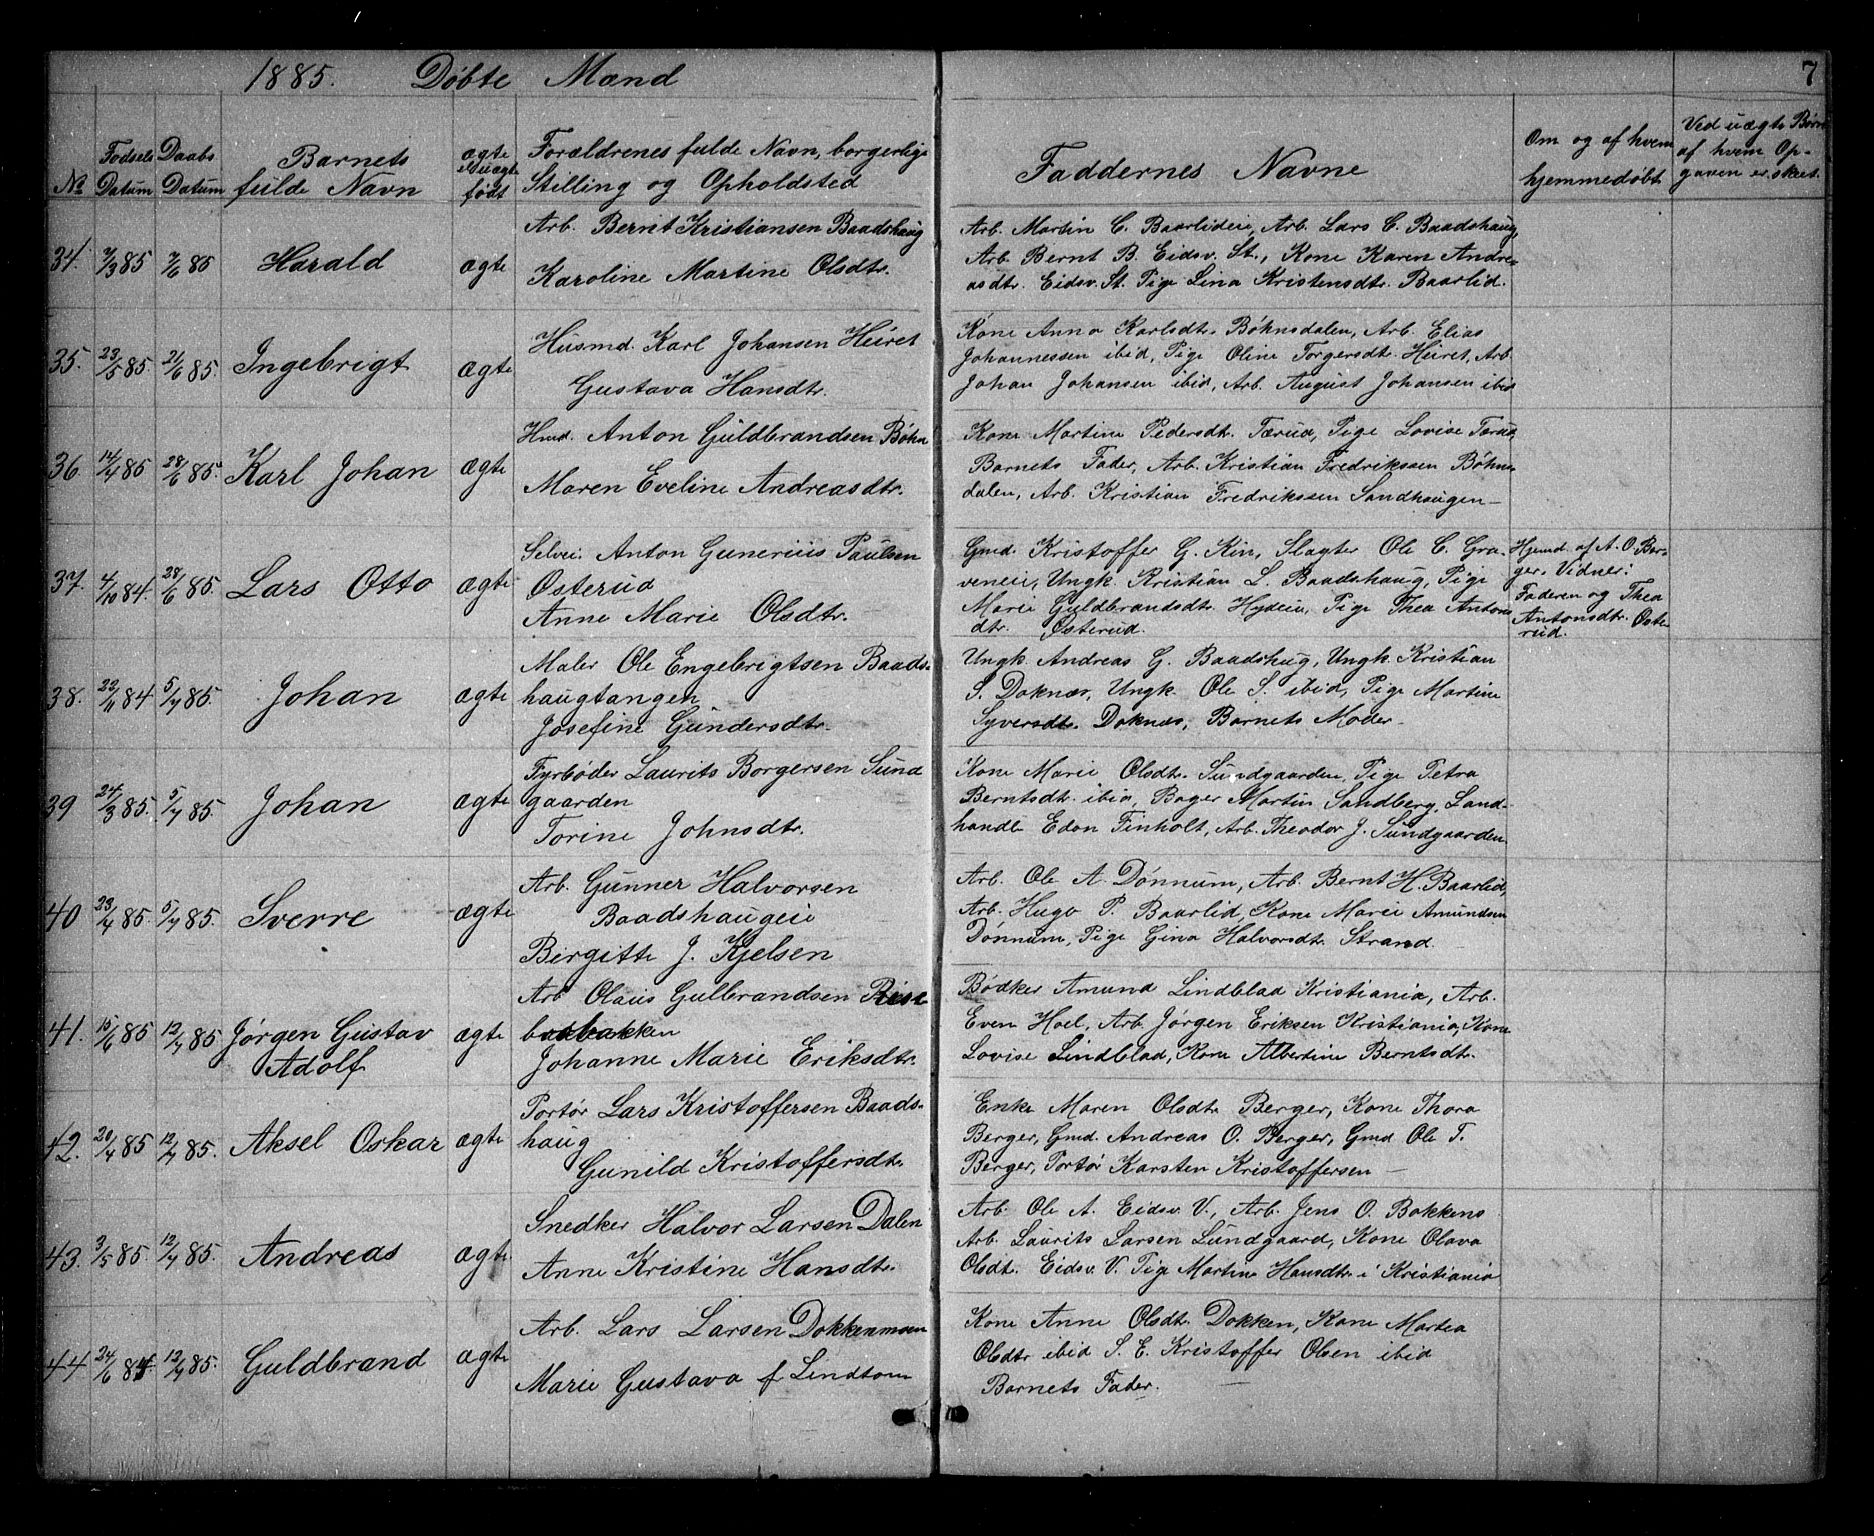 1885. Döbte Mænd
7
No
Födsels Datum
Daabs Datum
Barnets fulde Navn
ægte ell. uægte födt
Forældrenes fulde Navn, borgerlige Stilling og Opholdsted
Faddernes Navne
Om og af hvem hjemmedöbt
Ved uægte Börn af hvem Opgaven er skeet.
34. 7/3 85 7/6 85 Harald ægte
Arb. Bernt Kristiansen Baadshaug
Karoline Martine Olsdtr.
Arb. Martin C. Baarlideie, Arb. Lars C. Baadshaug,
Arb. Bernt B. Eidsv. St., Kone Karen Andre-
asdtr. Eidsv. St. Pige Lina Kristensdtr. Baarlid.
35. 23/5 85. 21/6 85. Ingebrigt ægte
Husmd. Karl Johansen Heiret
Gustava Hansdtr.
Kone Anna Karlsdtr. Böhnsdalen, Arb. Elias
Johannessen ibid, Pige Oline Torgersdtr. Heiret, Arb.
Johan Johansen ibid, Arb. August Johansen ibid
36 14/4 85 28/6 85. Karl Johan ægte
Hmd. Anton Guldbrandsen Böhn
Maren Eveline Andreasdtr.
Kone Martine Pedersdtr. Tærud, Pige Lovise Tærud,
Barnets Fader, Arb. Kristian Fredrikssen Böhns-
dalen, Arb. Kristian Fredrikssen Sandhaugen -
37. 4/10 84. 28/6 85. Lars Otto ægte
Selvei. Anton Gunerius Paulsen
Österud
Anne Marie Olsdtr.
Gmd. Kristoffer G. Kin, Slagter Ole C. Gra-
veneie, Ungk. Kristian L. Baadshaug, Pige
Marie Guldbrandsdtr. Hydeie, Pige Thea Antons
dtr. Österud.
Hjemd. af A. O. Ber-
ger. Vidner:
Faderen og Thea
Antonsdtr. Öste
rud.
38. 22/11 84 5/7 85. Johan ægte
Maler Ole Engebrigtsen Baads-
haugtangen
Josefine Gundersdtr.
Ungk. Andreas G. Baadshug, Ungk. Kristian
S. Doknæs, Ungk. Ole S. ibid, Pige Martine
Syversdtr. Doknæs, Barnets Moder -
39 24/3 85. 5/7 85. Johan ægte
Fyrböder Laurits Borgersen Sund
gaarden
Torine Johnsdtr.
Kone Marie Olsdtr. Sundgaarden, Pige Petra
Berntsdtr. ibid, Bager Martin Sandberg, Land-
handl. Edon Finholt, Arb. Theodor J. Sundgaarden.
40 23/4 85. 5/7 85. Sverre ægte
Arb. Gunner Halvorsen
Baadshaugeie
Birgitte J. Kjelsen
Arb. Ole A. Dönnum, Arb. Bernt H. Baarlid,
Arb. Hugo P. Baarlid, Kone Marie Amundsen
Dönnum, Pige Gina Halvorsdtr. Strand.
41. 15/6 85 12/7 85 Jörgen Gustav
Adolf ægte
Arb Olaus Gulbrandsen Rise
bakken
Johanne Marie Eriksdtr.
Bödker Amund Lindblad Kristiania, Arb.
Even Hoel, Arb. Jörgen Eriksen Kristiania, Kone
Lovise Lindblad, Kone Albertine Berntsdtr.
42. 20/4 85 12/7 85. Aksel Oskar ægte
Portör Lars Kristoffersen Baads-
haug
Gunild Kristoffersdtr.
Enke Maren Olsdtr Berger, Kone Thora
Berger, Gmd. Andreas O. Berger, Gmd Ole T.
Berger, Portör Karsten Kristoffersen -
43. 3/5 85. 12/7 85. Andreas ægte
Snedker Halvor Larsen Dalen
Anne Kristine Hansdtr.
Arb. Ole A. Eidsv. V., Arb. Jens O. Bakkens
Arb. Laurits Larsen Sundgaard, Kone Olava
Olsdt. Eidsv. V. Pige Martine Hansdtr. i Kristiania
44 24/6 84. 12/7 85. Guldbrand ægte
Arb. Lars Larsen Dokkenmoen
Marie Gustava f. Lindtom
Kone Anne Olsdtr. Dokken, Kone Martea
Olsdtr ibid S. E. Kristoffer Olsen ibid
Barnets Fader. -